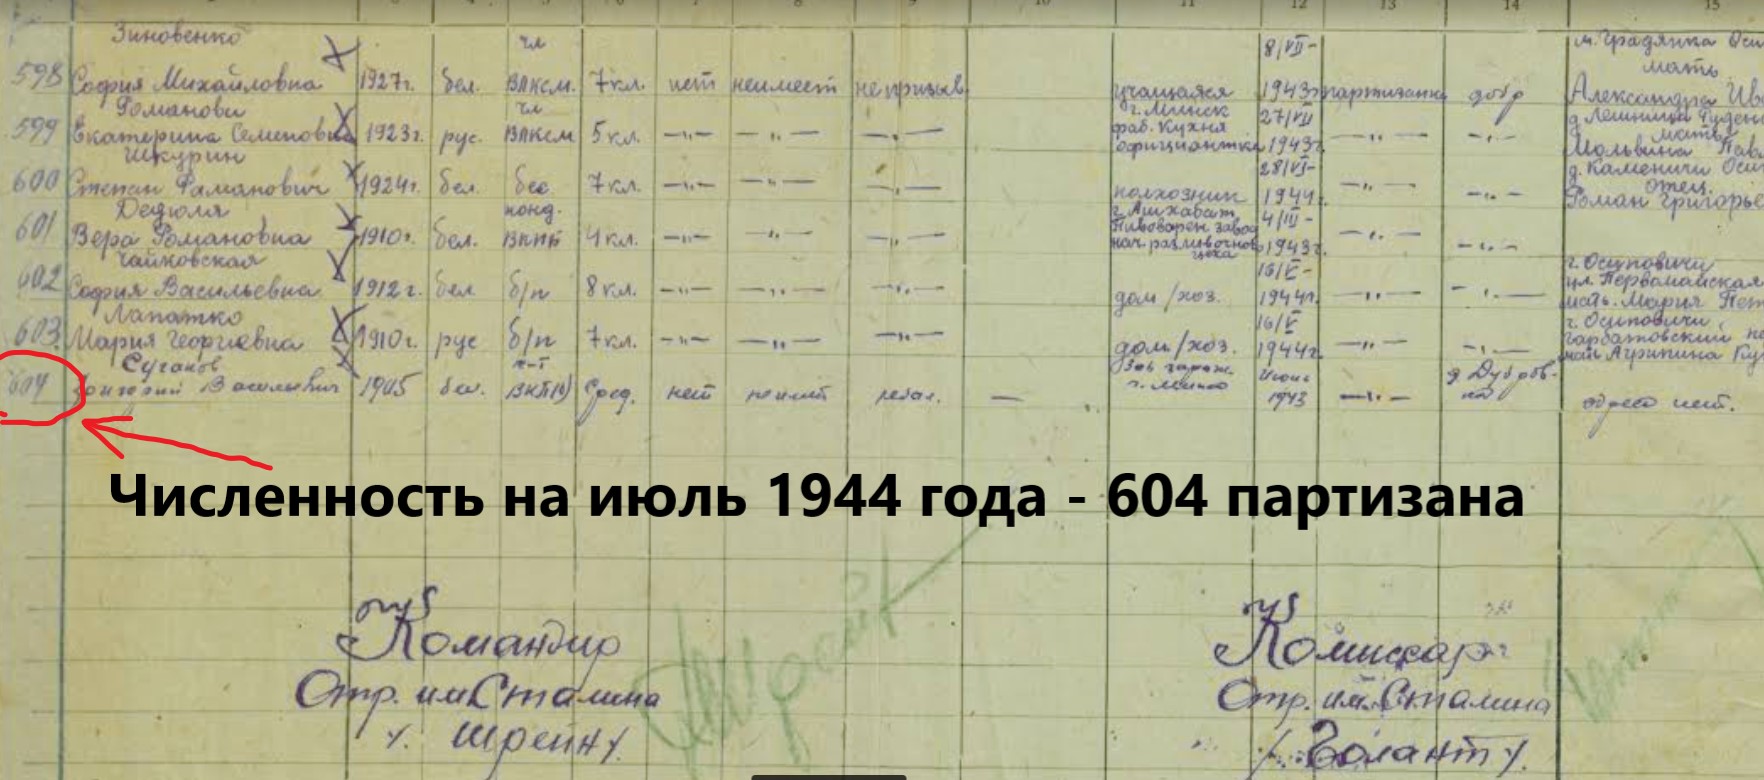 11 12 13 14 15
Зиновенко чл 8/VII- м. Градянка Оси
598 София Михайловна 1927г. бел. ВЛКСМ. 7кл. нет неимеет не призыв. учащаяся 1943г партизанка добр мать Александра Ив
Романова чл г. Минск 27/VII
599 Екатерина Семеновна 1923г. рус. ВЛКСМ 5кл. —„— —„— —„— фаб. Кухня официантка 1943г. —„— —„— мать
Шкурин 28/VI- д. Каменичи Оси
600 Степан Раманович 1924г. бел. бес 7кл. —„— —„— —„— колхозник 1944г. —„— —„— отец. Роман Григорье
Дедюля канд. г. Ашхабат 4/III-
601 Вера Романовна 1910г. бел. ВКПб 4кл. —„— —„— —„— Пивоварен завод нач. разливочного цеха 1943г. —„— —„—
Чайковская 16/V- г. Осиповичи
602 София Васильевна 1912г. бел б/п 8кл. —„— —„— —„— дом/хоз. 1944г. —„— —„— ул. Первомайская мать. Мария Пет
Лапатко 16/V г. Осиповичи
603. Мария Георгиевна 1910г. рус б/п 7кл. —„— —„— —„— дом/хоз. 1944г. —„— —„—
Суганов Зав гараж. Июнь д. Дубров-
604 Григорий Васильевич 1905 бел. ВКП(б) Сред. нет неимеет — г. Минск 1943 —„— ка адреса нет.
Численность на июль 1944 года - 604 партизана
Командир Комиссар
Отр. им Сталина Отр. им. Сталина
/. Шрейн/. /. Голант/.